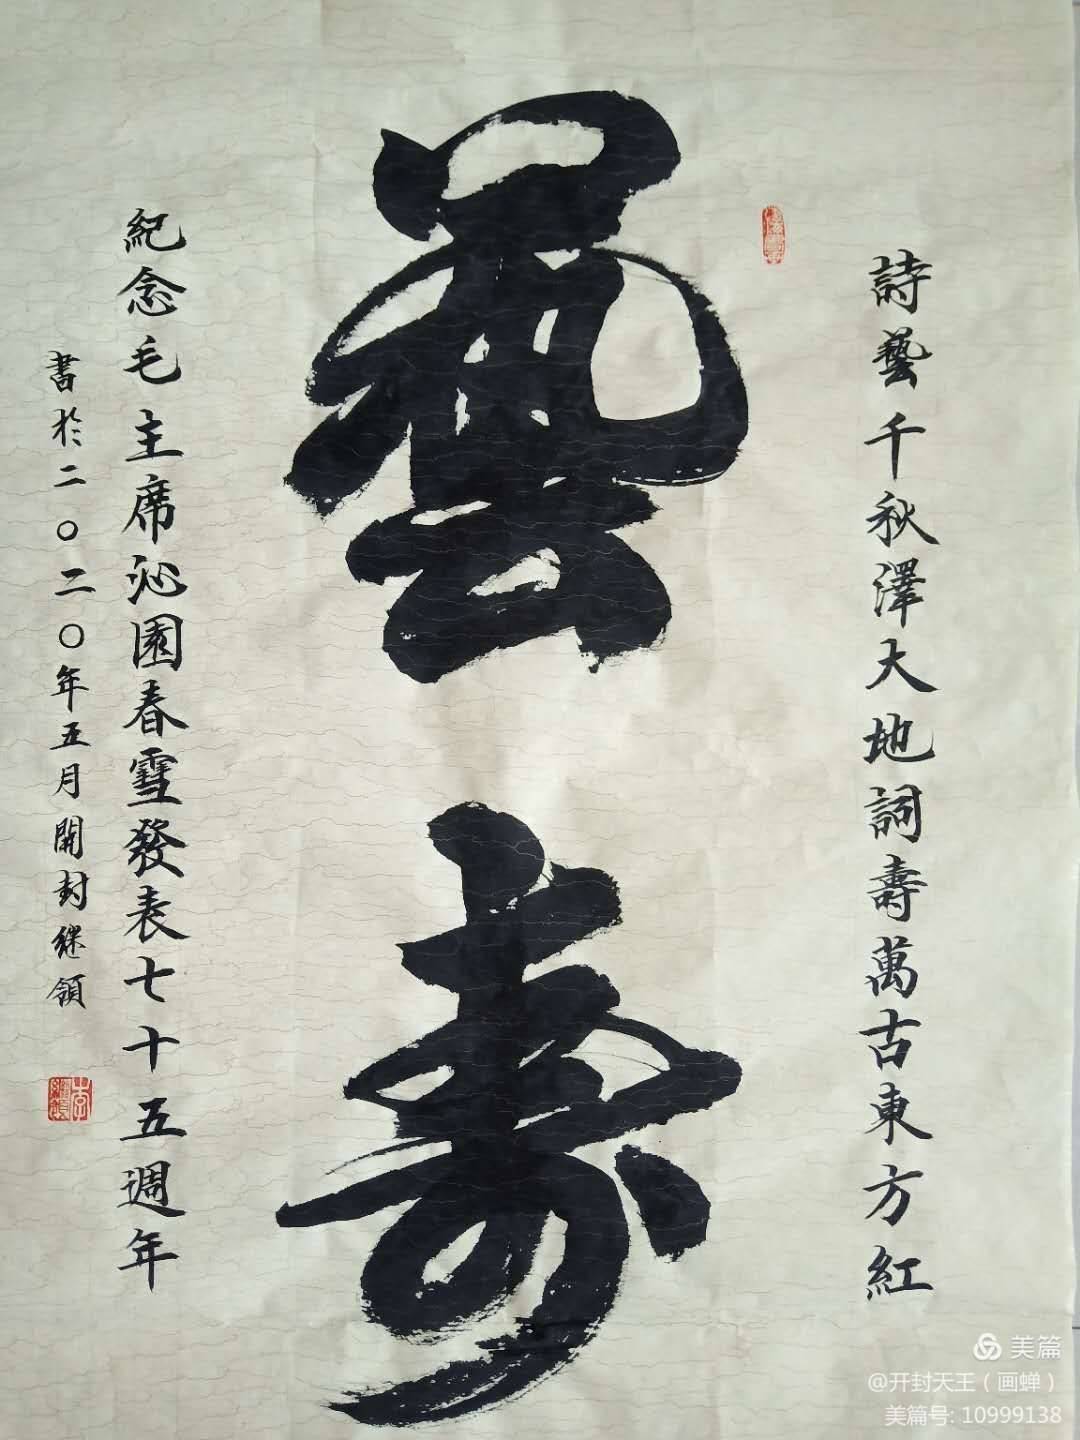 詩藝千秋澤大地詞壽萬古東方紅
藝壽
紀念毛主席沁園春雪發表七十五週年
書於二〇二〇年五月開封继領
美篇
@开封天王（画蝉）
美篇号: 10999138